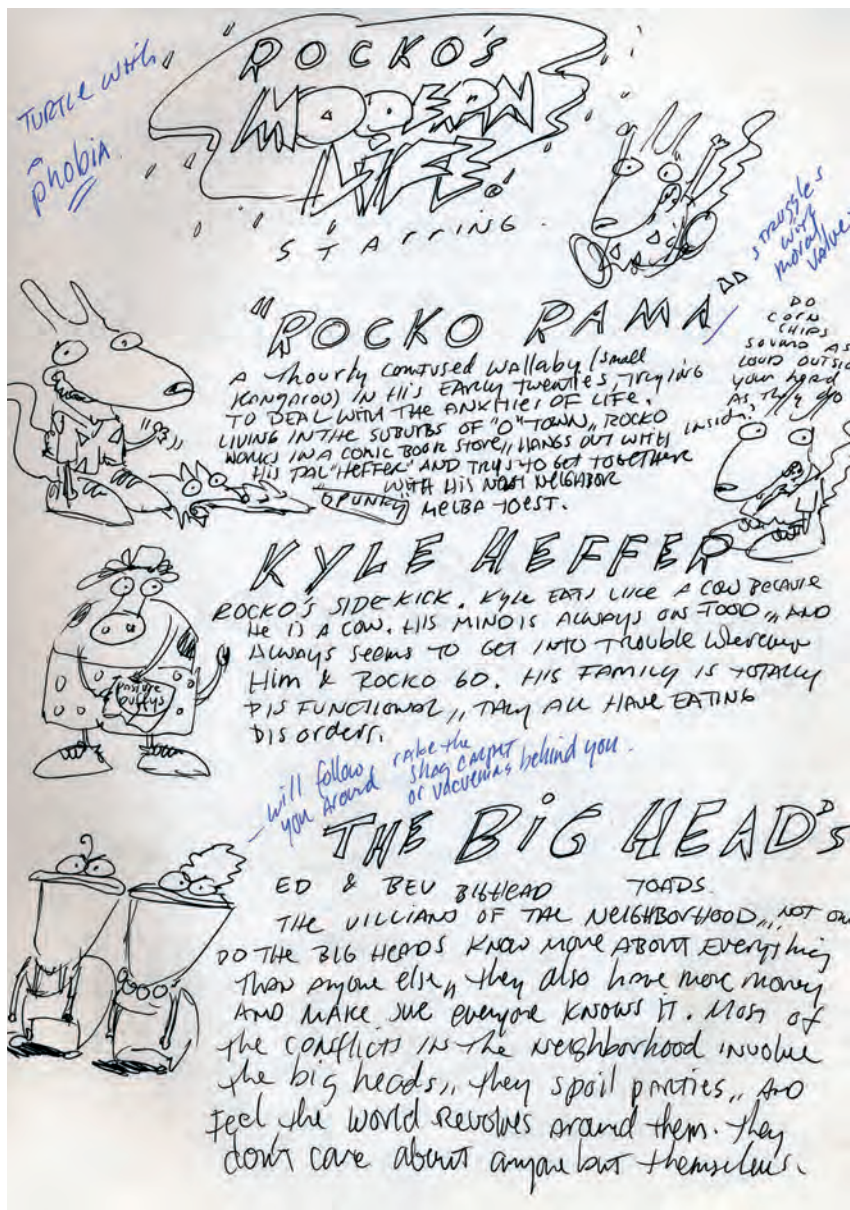 TURTLE WITH
a
phobia
ROCKO'S
MODERN
LIFE!
STARRING
struggles
with
moral
value
"ROCKO RAMA"
A Thourly confused wallaby (small
Kangaroo) IN HIS EARLY twenties, TRYING
TO DEAL WITH THE ANXITIES OF LIFE.
LIVING IN THE SUBURBS OF "O" TOWN,, ROCKO
WORKS IN A COMIC BOOK STORE,, HANGS OUT WITH
HIS PAL "HEFFER" AND TRYS TO GET TOGETHER
WITH HIS NEXT NEIGHBOR
MELBA TOEST.
SPUNKY
DO
CORN
CHIPS
SOUND AS
LOUD OUTSIDE
YOUR HEAD
AS THEY DO
INSIDE?
KYLE HEFFER
ROCKO'S SIDEKICK. KYLE EATS LIKE A COW BECAUSE
HE IS A COW. HIS MIND IS ALWAYS ON FOOD,, AND
ALWAYS SEEMS TO GET INTO TROUBLE Wherever
Him & ROCKO GO. HIS FAMILY IS TOTALLY
DISFUNCTIONAL,, THEY ALL HAVE EATING
DISorders.
pasture
puffys
will follow
you around
rake the
shag carpet
or vacuuming behind you.
THE BIG HEAD's
ED & BEV BIGHEAD TOADS.
THE VILLIANS OF THE NEIGHBORHOOD,, NOT ON
DO THE BIG HEADS KNOW MORE ABOUT EVERYthing
THAN ANYONE else,, they also have more money
AND MAKE SUE everyone KNOWS IT. MOST of
the CONFLICTS IN THE Neighborhood involve
the big heads,, they spoil parties,, AND
Feel the world Revolves around them. they
don't care about anyone but themselves.